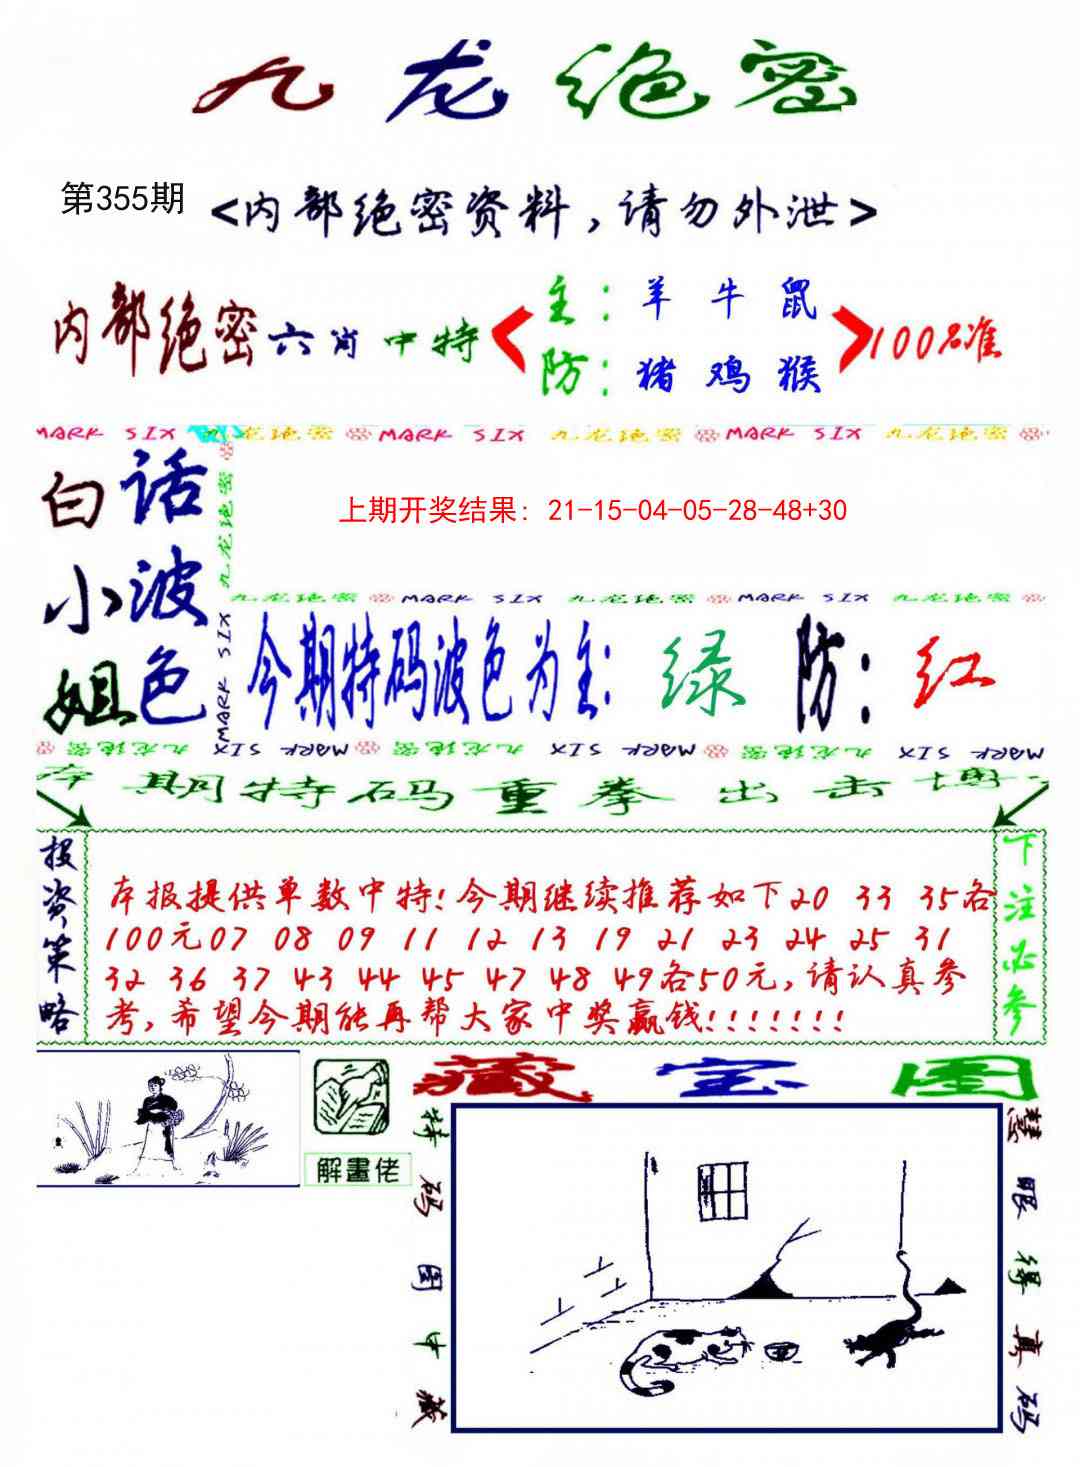 九龙绝密
第355期
<内部绝密资料，请勿外泄>
内部绝密六肖中特
主：羊 牛 鼠
防：猪 鸡 猴
100%准
MARK SIX 九龙绝密 MARK SIX 九龙绝密 MARK SIX 九龙绝密
白小姐
话波色
九龙绝密
MARK SIX
上期开奖结果: 21-15-04-05-28-48+30
九龙绝密 MARK SIX 九龙绝密 MARK SIX 九龙绝密
今期特码波色为主：绿 防：红
九龙绝密 MARK SIX 九龙绝密 MARK SIX 九龙绝密 MARK SIX
本期特码重拳出击博
投资策略
本报提供单数中特!今期继续推荐如下20 33 35各
100元07 08 09 11 12 13 19 21 23 24 25 31
32 36 37 43 44 45 47 48 49各50元,请认真参
考,希望今期能再帮大家中奖赢钱!!!!!!!
下注必参
解畫佬
藏宝图
特码图中藏
慧眼得真码